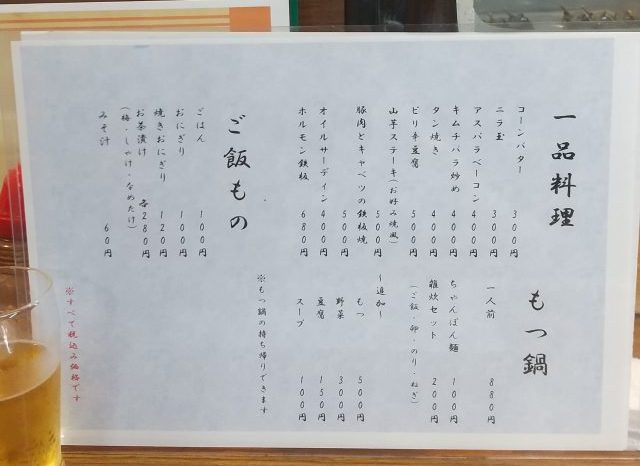 一品料理
コーンバター 300円
ニラ玉 300円
アスパラベーコン 400円
キムチバラ炒め 400円
タン焼き 400円
ピリ辛豆腐 500円
山芋ステーキ(お好み焼風) 500円
豚肉とキャベツの鉄板焼 500円
オイルサーディン 400円
ホルモン鉄板 680円
もつ鍋
一人前 880円
ちゃんぽん麺 100円
雑炊セット 200円
(ご飯・卵・のり・ねぎ)
~追加~
もつ 500円
野菜 300円
豆腐 150円
スープ 100円
※もつ鍋の持ち帰りできます
ご飯もの
ごはん 100円
おにぎり 100円
焼きおにぎり 120円
お茶漬け 各280円
(梅・しゃけ・なめたけ)
みそ汁 60円
※すべて税込み価格です